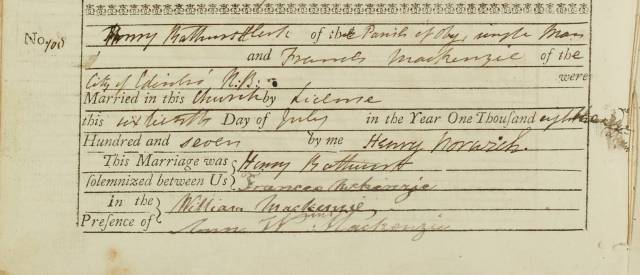 No. 700
Henry Bathurst Clerk of the Parish of Oby, single Man
and Frances Mackenzie of the
City of Edinbro' N.B: were
Married in this Church by License
this sixteenth Day of July in the Year One Thousand eight
Hundred and seven by me Henry Norwich.
This Marriage was solemnized between Us
Henry Bathurst
Frances Mckenzie
In the Presence of
William Mackenzie
Mackenzie